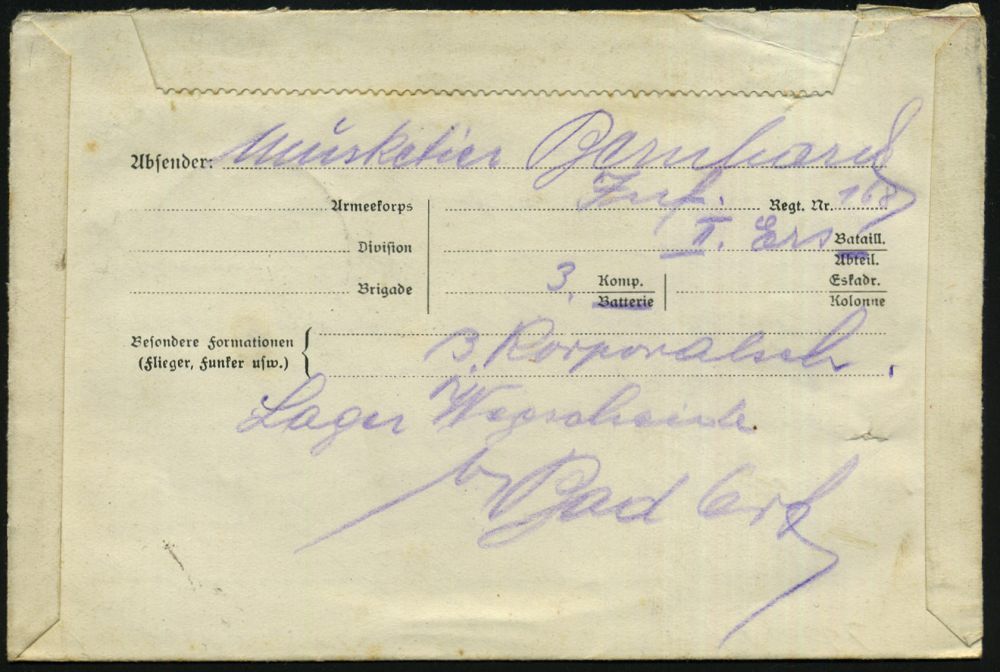 Absender: Musketier Bernhard
Armeekorps Inf. Regt. Nr. 168
Division II. Ers. Bataill.
Abteil.
Brigade 3. Komp.
Batterie
Eskadr.
Kolonne
Besondere Formationen
(Flieger, Funker usw.)
3. Korporalsch.
Lager Wegscheide
b. Bad Orb